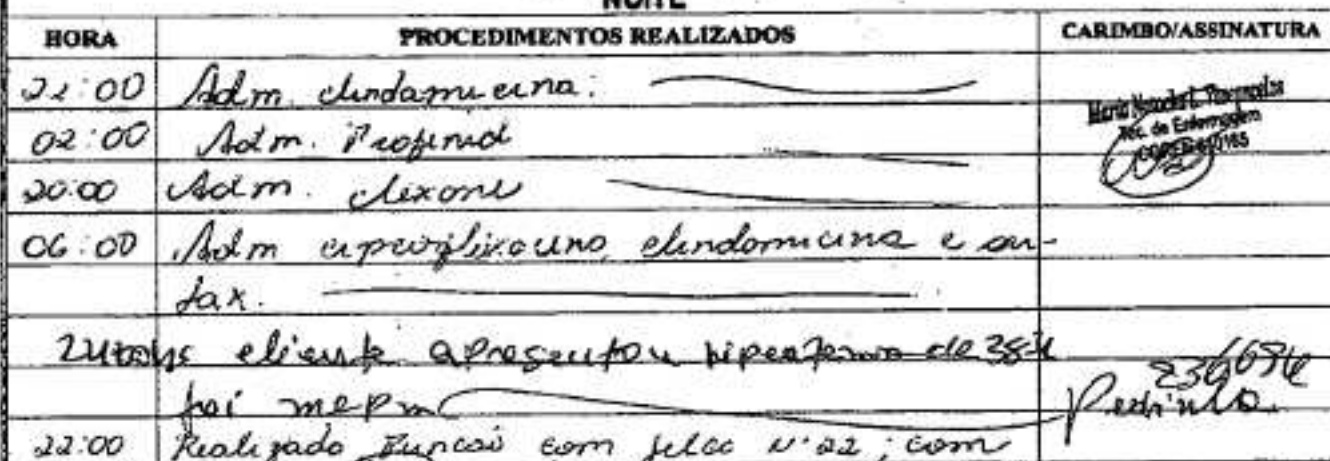 NOITE
HORA PROCEDIMENTOS REALIZADOS CARIMBO/ASSINATURA
22:00 Adm. clindamicina.
02:00 Adm. Profenid
20:00 Adm. clexane
06:00 Adm ciprofloxacino, clindamicina e an-
tax.
24:00hs cliente apresentou hipertermia de 38
foi mepm
Tec. de Enfermagem
236694
22:00 Realizado Punção com jelco Nº 22; com